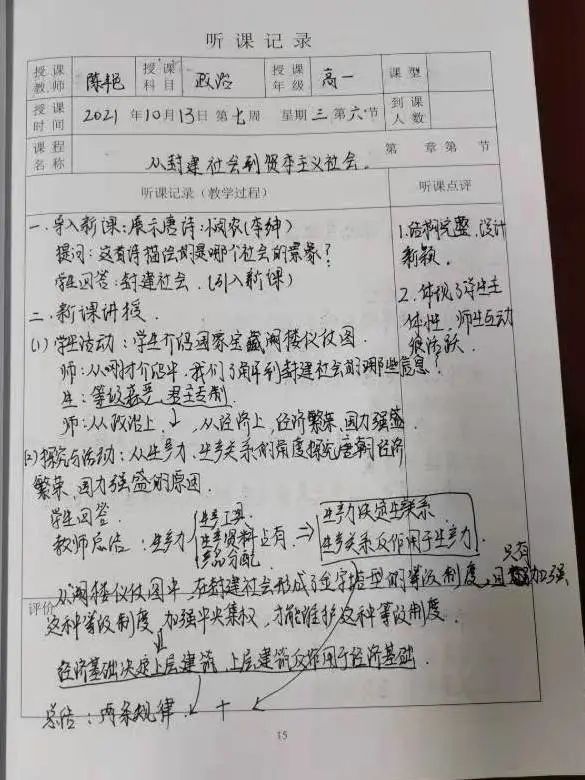 听课记录
授课教师 陈艳 授课科目 政治 授课年级 高一 课型
授课时间 2021年10月13日 第七周 星期三 第六节 到课人数
课程名称 从封建社会到资本主义社会。 第 章 第 节
听课记录（教学过程） 听课点评
一、导入新课：展示唐诗：《悯农》(李绅)
提问：这首诗描绘的是哪个社会的景象？
学生回答：封建社会．(引入新课)
二、新课讲授．
(1) 学生活动：学生介绍国家宝藏阙楼仪仗图．
师：从刚才介绍中，我们了解到封建社会的哪些信息？
生：等级森严，君主专制．
师：从政治上↓，从经济上，经济繁荣，国力强盛
(2)探究与活动：从生产力、生产关系的角度探究唐朝经济
繁荣、国力强盛的原因．
学生回答．
教师总结：生产力 生产工具 生产资料占有 产品分配 ⇒ 生产力决定生产关系 生产关系反作用于生产力
从阙楼仪仗图中，在封建社会形成了金字塔型的等级制度，且只有加强
这种等级制度，加强中央集权，才能维护这种等级制度．
经济基础决定上层建筑，上层建筑反作用于经济基础．
总结：两条规律． +
1.结构完整，设计
新颖．
2．体现了学生主
体性，师生互动
很活跃．
评价
15